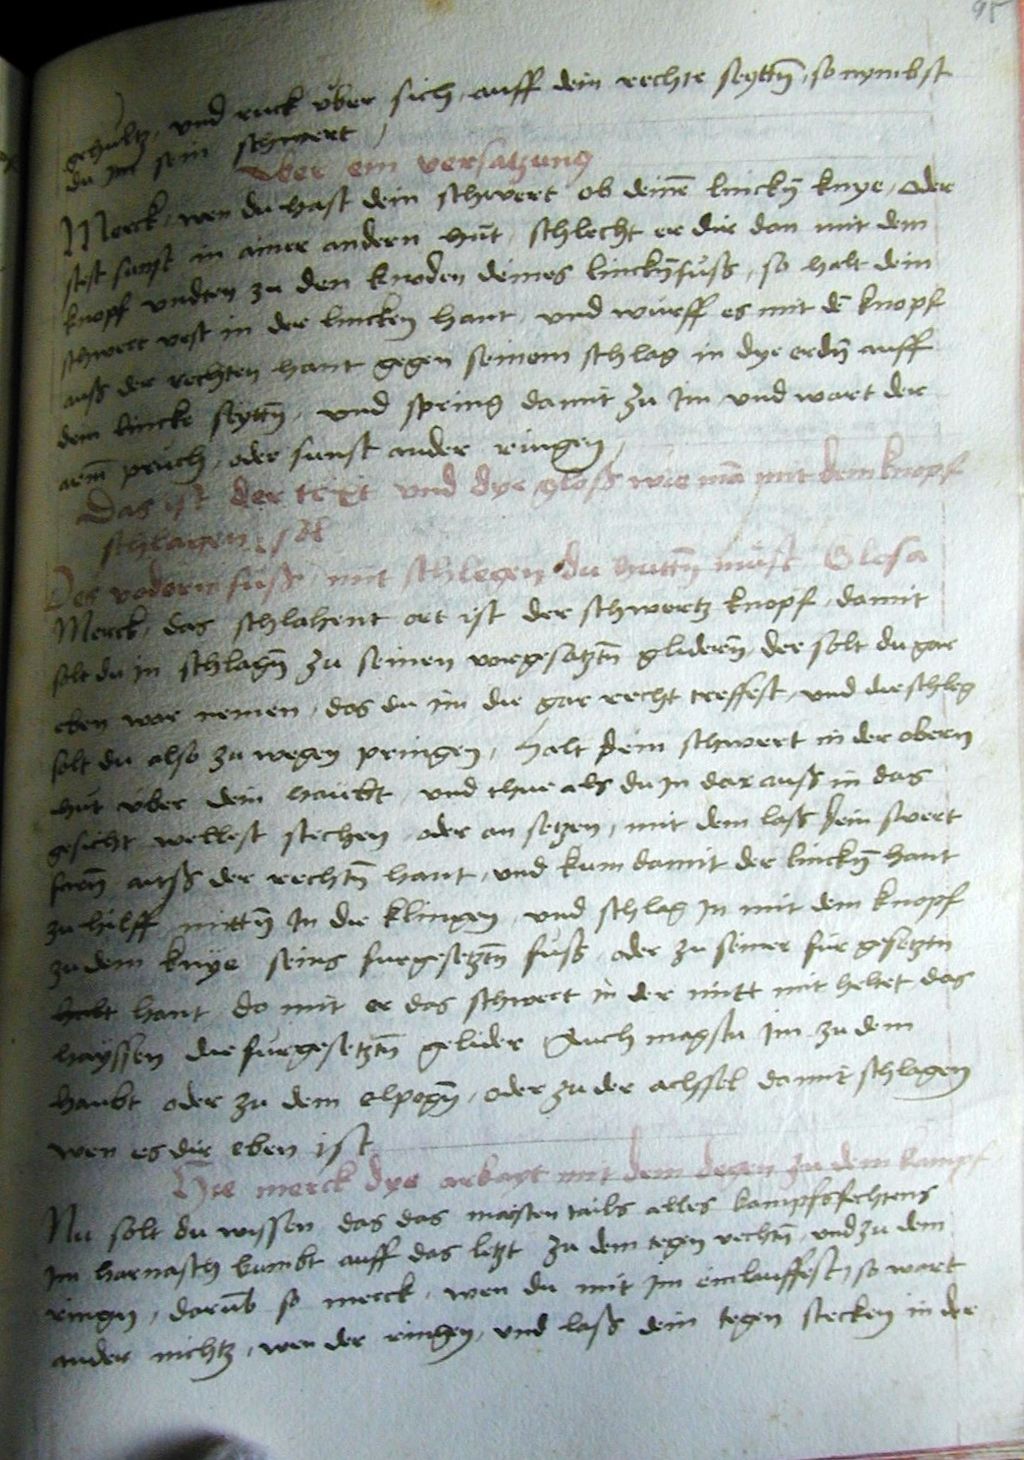 95
gehultz, und ruck über sich, auff dein rechte seyttn̄, so nymbst
du im sein schwert
Aber ein versatzung
Merck, wen du hast dein schwert ob deinē linckn̄ knye, oder
stest sunst in ainer andern hůt, schlecht er dir dan mit dem
knopf undten zu den knoden deines linckn̄ fůss, so halt dein
schwert vest in der lincken hant, und wůrff es mit dē knopf
auß der rechten hant gegen seinem schlag in dye erdn̄ auff
dein lincke seyttn̄, und spring damit zu im und wart der
arm̄ pruch, oder sunst ander ringen
Das ist der text und dye gloß wie mā mit dem knopf
schlagen sol
Des vodern fůss, mit schlegen du hůttn̄ můst Glosa
Merck, das schlahent ort ist der schwertz knopf, damit
solt du in schlagn̄ zu seinen vorgesatztn̄ glidern̄, der solt du gar
eben war nemen, das du im die gar recht treffest, und die schleg
solt du also zu wegen pringen, halt dein schwert in der obern
hůt über dein haubt, und thue als du in dar auß in das
gesicht wellest stechen, oder an setzen, mit dem laß dein swert
farn̄ auß der rechtn̄ hant, und kum damit der linckn̄ hant
zu hilff mittn̄ in die klingen, und schlag in mit dem knopf
zu dem knye seins furgesetztn̄ fůss, oder zu seiner fůr gesetztn
hant, do mit er das schwert in der mitt mit heltet das
hayssen die fůrgesetztn̄ gelider Auch magstu im zu dem
haubt oder zu dem elpogn̄, oder zu der achssel damit schlagen
wen es dir eben ist
Hie merck dye arbayt mit dem degen zu dem kampf
Nu solt du wissen das das maisten tails alles kampfsfechtens
im harnasch kumbt auff das letzt zu dem tegen vechtn̄, und zu dem
ringn, darūb so merck, wen du mit im einlauffest, so wart
ander nichtz, wen der ringen, und laß dein tegen stecken in der